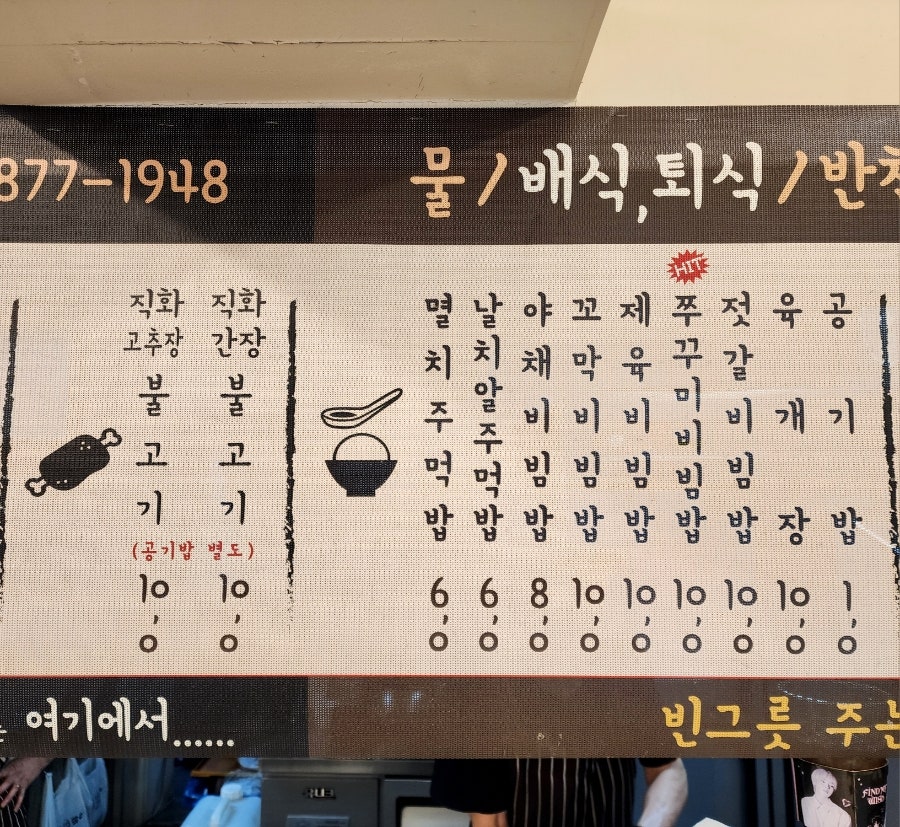 877-1948
물/배식,퇴식/반
HIT
직화 고추장 불고기
직화 간장 불고기
(공기밥 별도)
10,0
10,0
멸치주먹밥
날치알주먹밥
야채비빔밥
꼬막비빔밥
제육비빔밥
쭈꾸미비빔밥
젓갈비빔밥
육개장
공기밥
6,0
6,0
8,0
10,0
10,0
10,0
10,0
10,0
1,0
여기에서......
빈그릇 주는